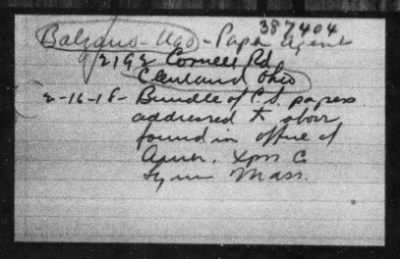 387404
Balzano - Ugo - Paper Agent
2192 Cornell Rd
Cleveland Ohio
2-16-18 - Bundle of C.S. papers
addressed to above
found in office of
Amer. Xpss Co
Lynn Mass.